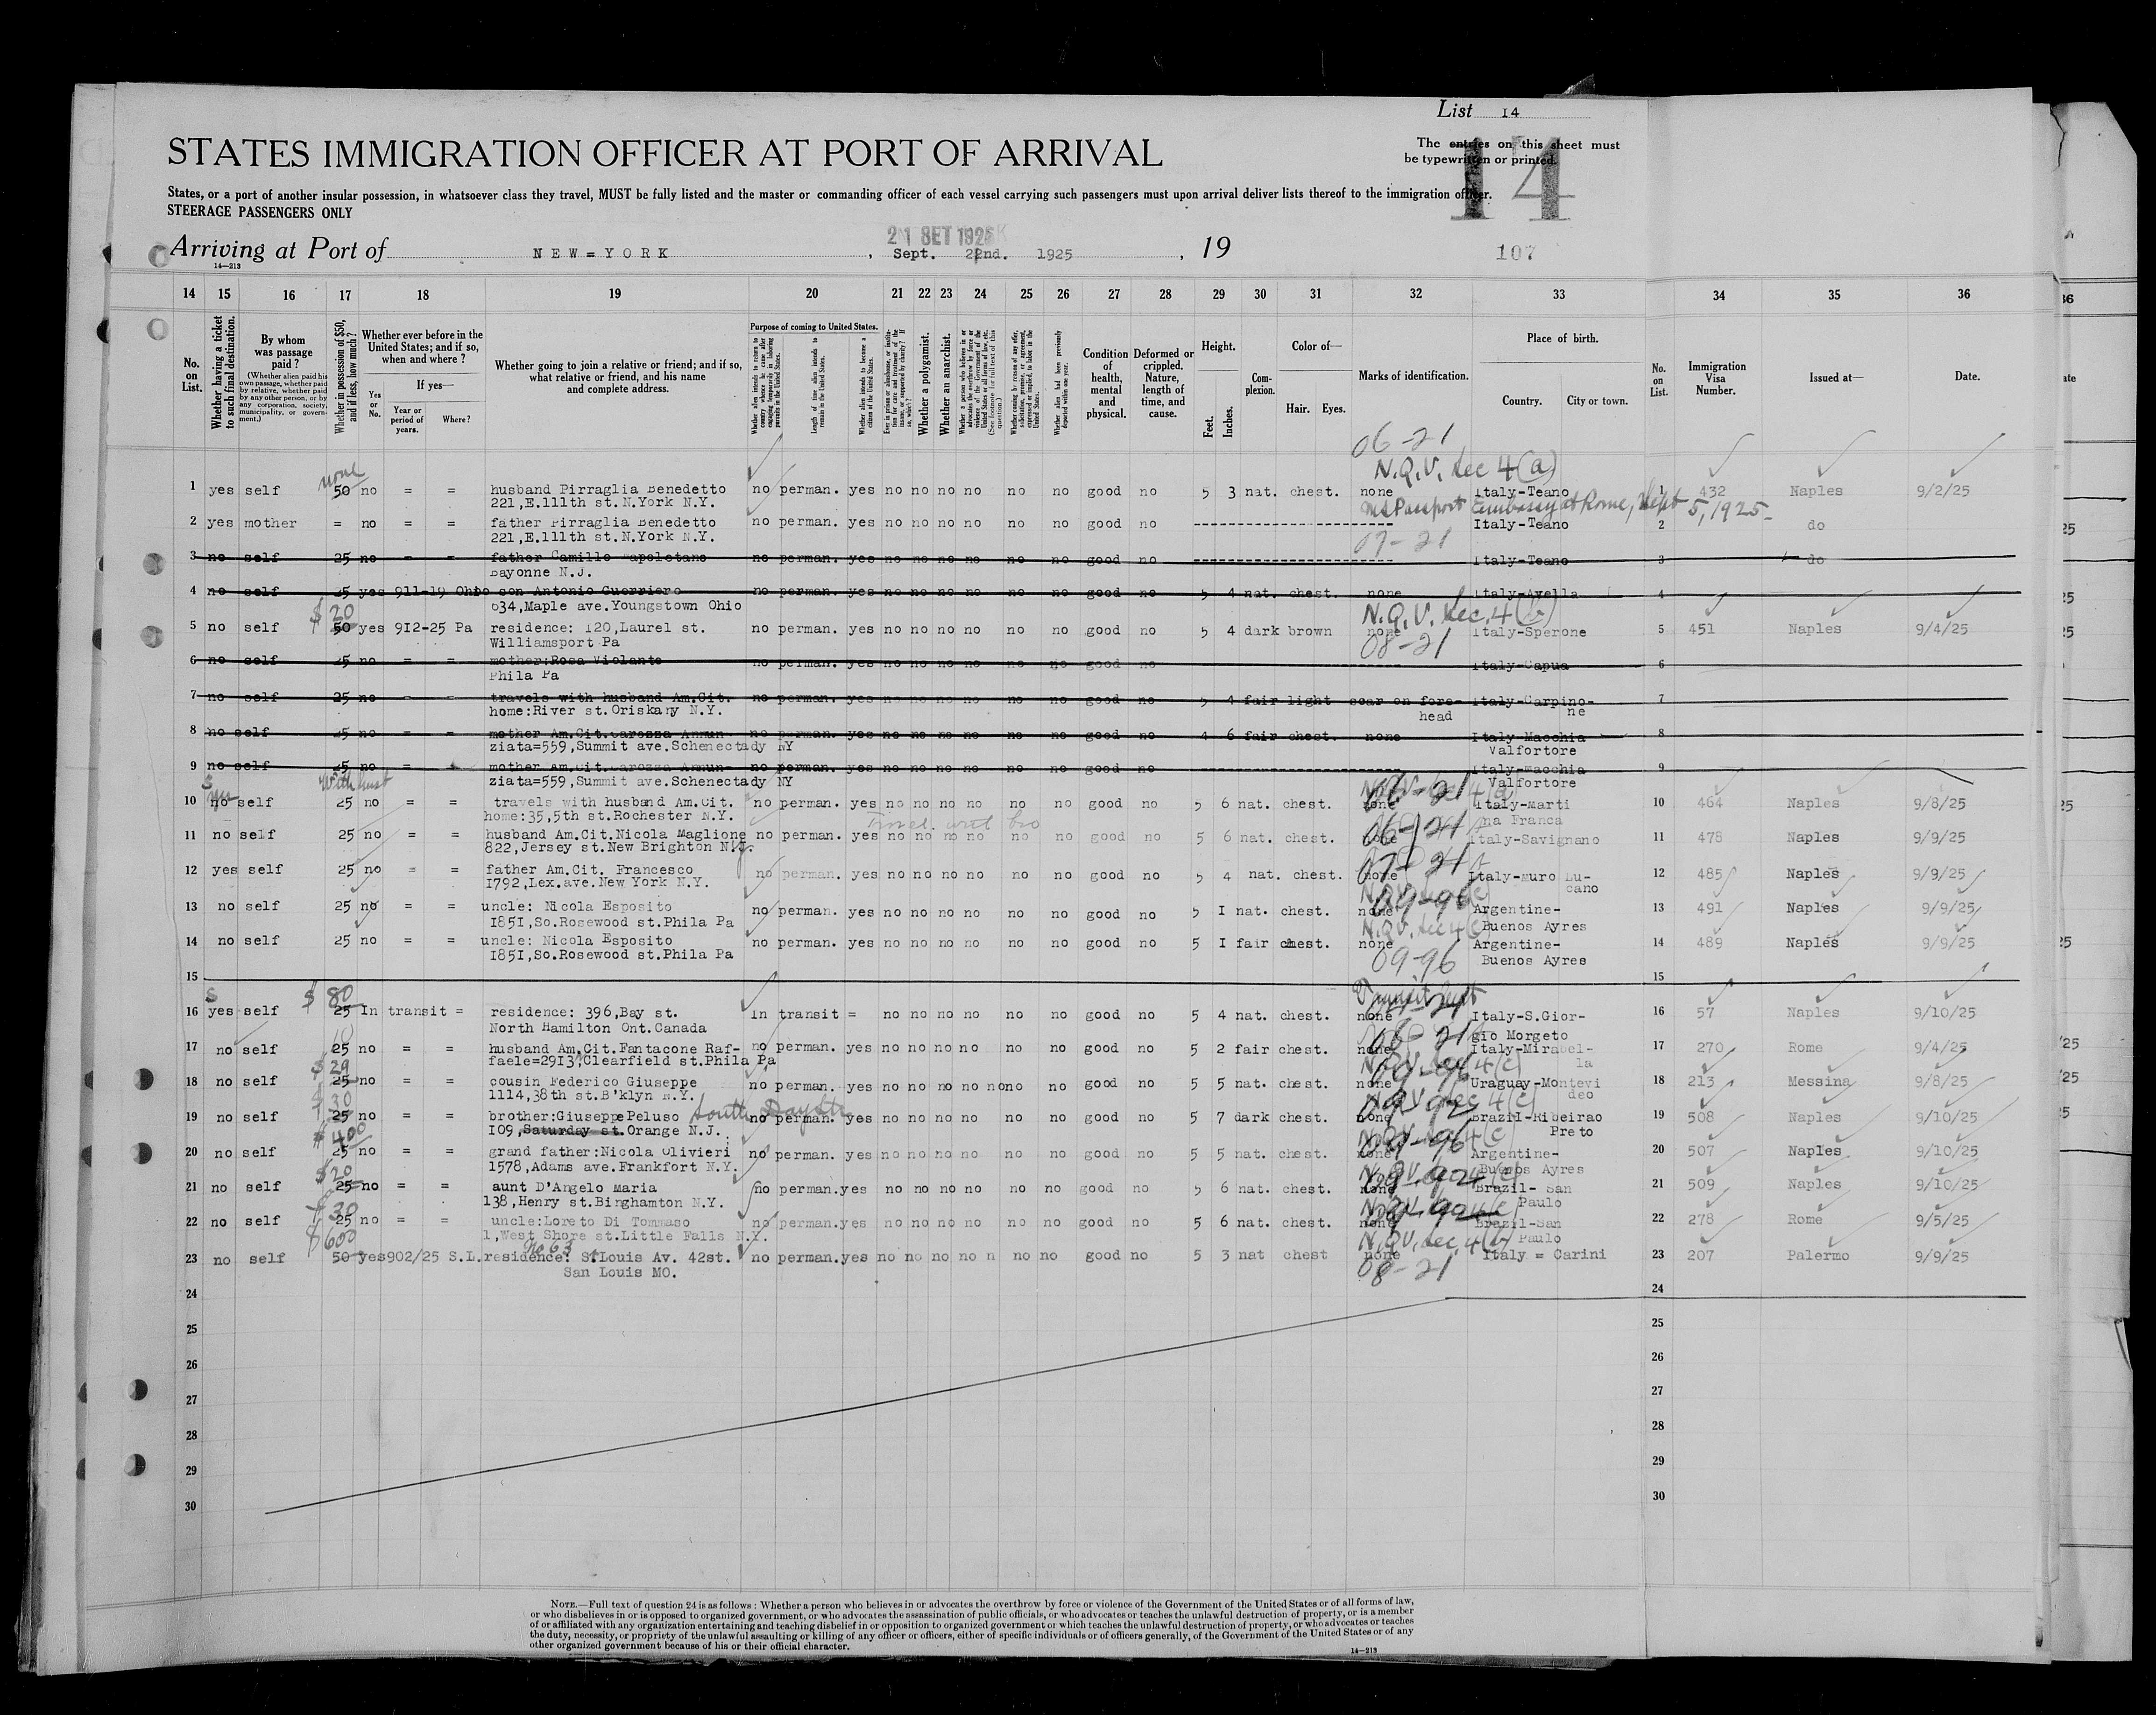 List 14
STATES IMMIGRATION OFFICER AT PORT OF ARRIVAL
The entries on this sheet must
be typewritten or printed.
14
States, or a port of another insular possession, in whatsoever class they travel, MUST be fully listed and the master or commanding officer of each vessel carrying such passengers must upon arrival deliver lists thereof to the immigration officer.
STEERAGE PASSENGERS ONLY
Arriving at Port of NEW=YORK, Sept. 22nd. 1925, 19 107
14—213
14 15 16 17 18 19 20 21 22 23 24 25 26 27 28 29 30 31 32 33 34 35 36
No. on List.
Whether having a ticket to such final destination.
By whom was passage paid?
(Whether alien paid his own passage, whether paid by relative, whether paid by any other person, or by any corporation, society, municipality, or government.)
Whether in possession of $50, and if less, how much?
Whether ever before in the United States; and if so, when and where?
Yes or No.
If yes—
Year or period of years.
Where?
Whether going to join a relative or friend; and if so, what relative or friend, and his name and complete address.
Purpose of coming to United States.
Length of time alien intends to remain in the United States.
Whether alien intends to become a citizen of the United States.
Whether a polygamist.
Whether an anarchist.
Condition of health, mental and physical.
Deformed or crippled. Nature, length of time, and cause.
Height.
Feet. Inches.
Complexion.
Color of—
Hair. Eyes.
Marks of identification.
Place of birth.
Country. City or town.
No. on List.
Immigration Visa Number.
Issued at—
Date.
06-21
N.Q.V. Sec 4(a)
none
1 yes self 50 no = = husband Pirraglia Benedetto no perman. yes no no no no no no good no 5 3 nat. chest. none Italy-Teano 1 432 Naples 9/2/25
221,E.111th st.N.York N.Y. Passport Embassy at Rome, Sept 5, 1925
2 yes mother = no = = father Pirraglia Benedetto no perman. yes no no no no no no good no Italy-Teano 2 do
221,E.111th st.N.York N.Y. 07-21
3 no self 25 no = = father Camillo Napoletano no perman. yes no no no no no no good no Italy-Teano 3 do
Bayonne N.J.
4 no self 25 yes 911-19 Ohio son Antonio Guerriero no perman. yes no no no no no no good no 5 4 nat. chest. none Italy-Avella 4
634,Maple ave.Youngstown Ohio N.Q.V. Sec.4(b)
$20
5 no self 50 yes 912-25 Pa residence: 120,Laurel st. no perman. yes no no no no no no good no 5 4 dark brown none Italy-Sperone 5 451 Naples 9/4/25
Williamsport Pa 08-21
6 no self 25 no = = mother:Rosa Violante no perman. yes no no no no no no good no Italy-Capua 6
Phila Pa
7 no self 25 no = = travels with husband Am.Cit. no perman. yes no no no no no no good no 5 4 fair light scar on fore- Italy-Carpino- 7
home:River st.Oriskany N.Y. head ne
8 no self 25 no = = mother Am.Cit.Carozza Annun- no perman. yes no no no no no no good no 4 6 fair chest. none Italy Macchia 8
ziata=559,Summit ave.Schenectady NY Valfortore
9 no self 25 no = mother Am.Cit.Carozza Annun- no perman. yes no no no no no no good no Italy-Macchia 9
ziata=559,Summit ave.Schenectady NY Valfortore
With husb
10 no self 25 no = = travels with husband Am.Cit. no perman. yes no no no no no no good no 5 6 nat. chest. none Italy-Marti 10 464 Naples 9/8/25
home:35,5th st.Rochester N.Y. na Franca
11 no self 25 no = = husband Am.Cit.Nicola Maglione no perman. yes no no no no no no good no 5 6 nat. chest. none Italy-Savignano 11 478 Naples 9/9/25
822,Jersey st.New Brighton N.Y.
12 yes self 25 no = = father Am.Cit. Francesco no perman. yes no no no no no no good no 5 4 nat. chest. none Italy-Muro Lu- 12 485 Naples 9/9/25
1792,Lex.ave.New York N.Y. cano
13 no self 25 no = = uncle: Nicola Esposito no perman. yes no no no no no no good no 5 1 nat. chest. none Argentine- 13 491 Naples 9/9/25
1851,So.Rosewood st.Phila Pa Buenos Ayres
14 no self 25 no = = uncle: Nicola Esposito no perman. yes no no no no no no good no 5 1 fair chest. none Argentine- 14 489 Naples 9/9/25
1851,So.Rosewood st.Phila Pa 09-96 Buenos Ayres
15 15
$80
16 yes self 25 In transit = residence: 396,Bay st. In transit = no no no no no no good no 5 4 nat. chest. none Italy-S.Gior- 16 57 Naples 9/10/25
North Hamilton Ont.Canada gio Morgeto
17 no self 25 no = = husband Am.Cit.Fantacone Raf- no perman. yes no no no no no no good no 5 2 fair chest. none Italy-Mirabel- 17 270 Rome 9/4/25
faele=2913,Clearfield st.Phila Pa la
$29
18 no self 25 no = = cousin Federico Giuseppe no perman. yes no no no no no no good no 5 5 nat. chest. none Uraguay-Montevi 18 213 Messina 9/8/25
1114,38th st.B'klyn N.Y. deo
$30
19 no self 25 no = = brother:Giuseppe Peluso no perman. yes no no no no no no good no 5 7 dark chest. none Brazil-Ribeirao 19 508 Naples 9/10/25
109,Saturday st.Orange N.J. Preto
$400
20 no self 25 no = = grand father:Nicola Olivieri no perman. yes no no no no no no good no 5 5 nat. chest. none Argentine- 20 507 Naples 9/10/25
1578,Adams ave.Frankfort N.Y. Buenos Ayres
$20
21 no self 25 no = = aunt D'Angelo Maria no perman.yes no no no no no no good no 5 6 nat. chest. none Brazil- San 21 509 Naples 9/10/25
138,Henry st.Binghamton N.Y. Paulo
30
22 no self 25 no = = uncle:Loreto Di Tommaso no perman.yes no no no no no no good no 5 6 nat. chest. none Brazil-San 22 278 Rome 9/5/25
1,West Shore st.Little Falls N.Y. Paulo
$600 No 63 N.Q.V. Sec.4(b)
23 no self 50 yes902/25 S.L.residence: St.Louis Av. 42st. no perman.yes no no no no n no no good no 5 3 nat chest none Italy = Carini 23 207 Palermo 9/9/25
San Louis MO. 08-21
24 24
25 25
26 26
27 27
28 28
29 29
30 30
NOTE.—Full text of question 24 is as follows: Whether a person who believes in or advocates the overthrow by force or violence of the Government of the United States or of all forms of law,
or who disbelieves in or is opposed to organized government, or who advocates the assassination of public officials, or who advocates or teaches the unlawful destruction of property, or is a member
of or affiliated with any organization entertaining and teaching disbelief in or opposition to organized government or which teaches the unlawful destruction of property, or who advocates or teaches
the duty, necessity, or propriety of the unlawful assaulting or killing of any officer or officers, either of specific individuals or of officers generally, of the Government of the United States or of any
other organized government because of his or their official character.
14—213